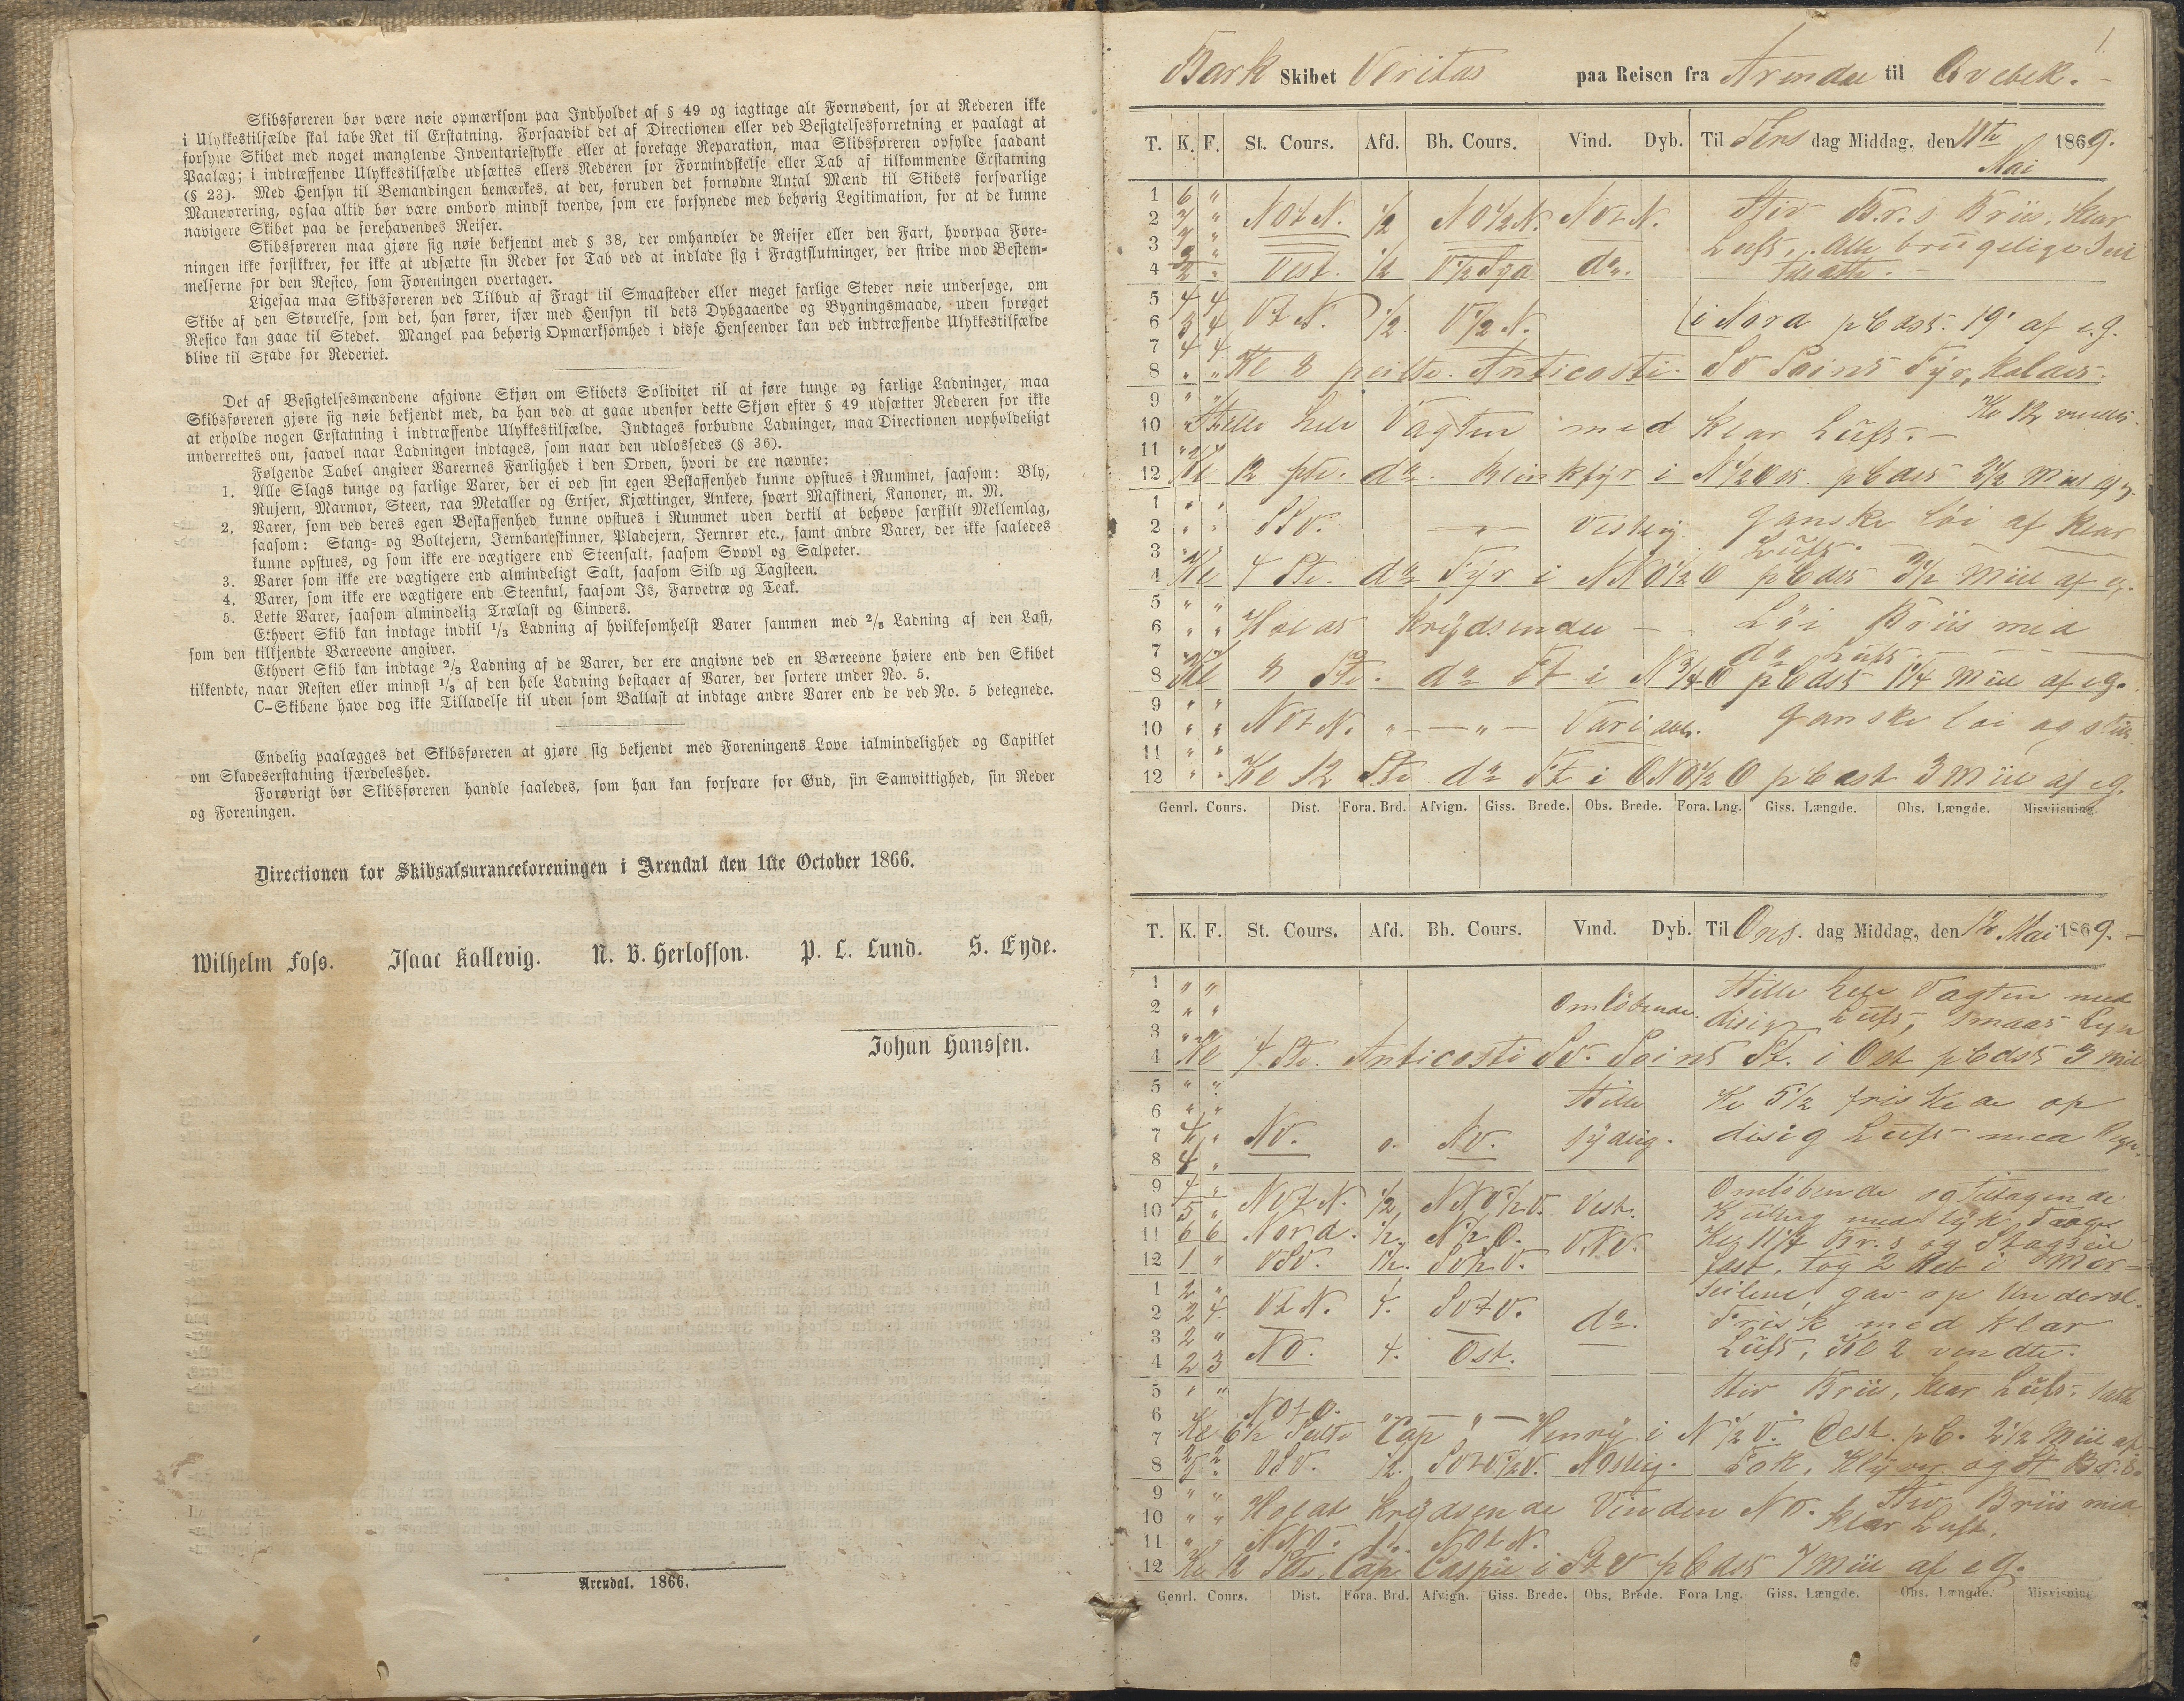 Skibsføreren bør være nøie opmærksom paa Indholdet af § 49 og iagttage alt Fornødent, for at Rederen ikke
i Ulykkestilfælde skal tabe Ret til Erstatning. Forsaavidt det af Directionen eller ved Besigtelsesforretning er paalagt at
forsyne Skibet med noget manglende Inventariestykke eller at foretage Reparation, maa Skibsføreren opfylde saadant
Paalæg; i indtræffende Ulykkestilfælde udsættes ellers Rederen for Formindskelse eller Tab af tilkommende Erstatning
(§ 23). Med Hensyn til Bemandingen bemærkes, at der, foruden det fornødne Antal Mænd til Skibets forsvarlige
Manøvrering, ogsaa altid bør være ombord mindst tvende, som ere forsynede med behørig Legitimation, for at de kunne
navigere Skibet paa de forehavendes Reiser.
Skibsføreren maa gjøre sig nøie bekjendt med § 38, der omhandler de Reiser eller den Fart, hvorpaa Fore-
ningen ikke forsikkrer, for ikke at udsætte sin Reder for Tab ved at indlade sig i Fragtslutninger, der stride mod Bestem-
melserne for den Resico, som Foreningen overtager.
Ligesaa maa Skibsføreren ved Tilbud af Fragt til Smaasteder eller meget farlige Steder nøie undersøge, om
Skibe af den Størrelse, som det, han fører, især med Hensyn til dets Dybgaaende og Bygningsmaade, uden forøget
Resico kan gaae til Stedet. Mangel paa behørig Opmærksomhed i disse Henseender kan ved indtræffende Ulykkestilfælde
blive til Skade for Rederiet.
Det af Besigtelsesmændene afgivne Skjøn om Skibets Soliditet til at føre tunge og farlige Ladninger, maa
Skibsføreren gjøre sig nøie bekjendt med, da han ved at gaae udenfor dette Skjøn efter § 49 udsætter Rederen for ikke
at erholde nogen Erstatning i indtræffende Ulykkestilfælde. Indtages forbudne Ladninger, maa Directionen uopholdeligt
underrettes om, saavel naar Ladningen indtages, som naar den udlossedes (§ 36).
Følgende Tabel angiver Varernes Farlighed i den Orden, hvori de ere nævnte:
1. Alle Slags tunge og farlige Varer, der ei ved sin egen Beskaffenhed kunne opstues i Rummet, saasom: Bly,
Rujern, Marmor, Steen, raa Metaller og Ertser, Kjættinger, Ankere, svært Maskineri, Kanoner, m. M.
2. Varer, som ved deres egen Beskaffenhed kunne opstues i Rummet uden dertil at behøve særskilt Mellemlag,
saasom: Stang- og Boltejern, Jernbaneskinner, Pladejern, Jernrør etc., samt andre Varer, der ikke saaledes
kunne opstues, og som ikke ere vægtigere end Steensalt, saasom Svovl og Salpeter.
3. Varer som ikke ere vægtigere end almindeligt Salt, saasom Sild og Tagsteen.
4. Varer, som ikke ere vægtigere end Steenkul, saasom Is, Farvetræ og Teak.
5. Lette Varer, saasom almindelig Trælast og Cinders.
Ethvert Skib kan indtage indtil 1/3 Ladning af hvilkesomhelst Varer sammen med 2/3 Ladning af den Last,
som den tilkjendte Bæreevne angiver.
Ethvert Skib kan indtage 2/3 Ladning af de Varer, der ere angivne ved en Bæreevne høiere end den Skibet
tilkendte, naar Resten eller mindst 1/3 af den hele Ladning bestaaer af Varer, der sortere under No. 5.
C-Skibene have dog ikke Tilladelse til uden som Ballast at indtage andre Varer end de ved No. 5 betegnede.
Endelig paalægges det Skibsføreren at gjøre sig bekjendt med Foreningens Love ialmindelighed og Capitlet
om Skadeserstatning isærdeleshed.
Forøvrigt bør Skibsføreren handle saaledes, som han kan forsvare for Gud, sin Samvittighed, sin Reder
og Foreningen.
Directionen for Skibsassuranceforeningen i Arendal den 1ste October 1866.
Wilhelm Foss. Isaac Kallevig. N. B. Herlofson. P. L. Lund. S. Eyde.
Johan Hanssen.
Arendal. 1866.
1.
Bark Skibet Veritas paa Reisen fra Arendal til Qvebek.
T. K. F. St. Cours. Afd. Bh. Cours. Vind. Dyb. Til Tirsdag Middag, den 11te Mai 1869.
1 6 " Stiv Br.s. Briis, klar
2 7 " NOtN. 1/2 NO1/2N. NVtN.
3 7 " Luft. Alle brugelige Seil
4 2 " Vest. 1/2 V1/2Syd do. tilsatte.
5 4 4
6 3 4 VtN. 1/2 V1/2N. i Nord pC dst. 19' af e.g.
7 4 4
8 " " Kl 8 peilte Anticosti SV Point Fyr, holdes
9 " " Kl 12 vendte.
10 " Stille hele Vagten med klar Luft.
11 " "
12 Kl 12 pte. do. Blinkfyr i N1/2Ost pC dst 2 1/2 Miil af e.g.
1 " "
2 " " SSV. " Vestlig. ganske løi af klar
3 " " Luft.
4 Kl 4 Pte. do Fyr i NNO1/2O pC dst 3 1/2 Miil af e.g.
5 " "
6 " " Holdt krydsende Løi Briis med
7 " " do Luft.
8 Kl 8 Pte. do Ft i N3/4O pC dst 1 1/4 Miil af e.g.
9 " "
10 " " NVtN. " " Variabel. ganske løi og stille
11 " "
12 " " Kl 12 Pte do Ft i ONO1/2O pC dst 3 Miil af e.g.
Genrl. Cours. Dist. Fora. Brd. Afvign. Giss. Brede. Obs. Brede. Fora. Lng. Giss. Længde. Obs. Længde. Misviisning.
T. K. F. St. Cours. Afd. Bh. Cours. Vind. Dyb. Til Ons. dag Middag, den 12 Mai 1869.
1 " " Stille hele Vagten med
2 " " Omløbende. disig Luft, smaat Regn
3 " "
4 Kl 4 Pte. Anticosti SV. Point Ft. i Ost pC dst 3 Miil
5 " " Stille Kl 5 1/2 friskede op
6 " "
7 4 " NV. 0. NV. sydlig. disig Luft med Regn.
8 4 "
9 4 " Omløbende og tiltagende
10 5 " NVtN. 1/2 NNV1/2V. Vest. Kuling med tyk Taage
11 6 6 Nord. 1/2 N1/2O. VNV. Kl 11 1/4 Br.s og Stagseil
12 1 " VSV. 1 1/2. fast, tog 2 Reb i Mer-
1 2 " seilene, gav op Underseil.
2 2 4 VtN. 4. SVtV. do. Frisk med klar
3 2 "
4 2 3 NO. 4. Ost. Luft, Kl 2 vendte.
5 " " Stiv Briis, klar Luft.
6 NOtO.
7 Kl 6 1/2 Peilte Cap Henry i N1/2V. Dest. pC. 2 1/2 Miil af
8 VSV. 1/2. SVtV1/2V. NOstlig. Fok, Klyver og St Br.s.
9 " " Stiv Briis med
10 " " Holdt krydsende Vinden NO. klar Luft.
11 " " NNO. NOtN.
12 Kl 12 Pte. Cap Caspie i StV pC dst 7 Miil af e.g.
Genrl. Cours. Dist. Fora. Brd. Afvign. Giss. Brede. Obs. Brede. Fora Lng. Giss. Længde. Obs. Længde. Misvisning